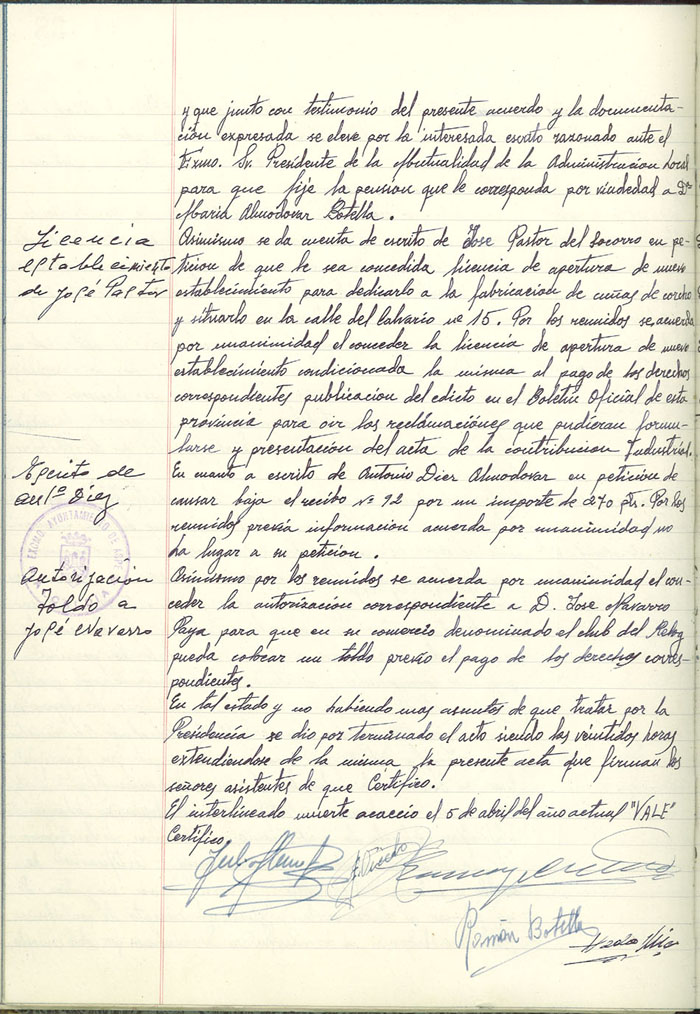 y que junto con testimonio del presente acuerdo y la documenta-
ción expresada se eleve por la interesada escrito razonado ante el
Exmo. Sr. Presidente de la Mutualidad de la Administracion Local
para que fije la pension que le corresponda por viudedad a Dª
Maria Almodovar Botella.
Licencia
establecimiento
de José Pastor
Asimismo se da cuenta de escrito de Jose Pastor del Socorro en pe-
ticion de que le sea concedida licencia de apertura de nuevo
establecimiento para dedicarlo a la fabricacion de cuñas de corcho
y situarlo en la calle del Calvario nº 15. Por los reunidos se acuerda
por unanimidad el conceder la licencia de apertura de nuevo
establecimiento condicionada la misma al pago de los derechos
correspondientes publicacion del edicto en el Boletin Oficial de esta
provincia para oir las reclamaciónes que pudieran formu-
larse y presentación del acta de la contribucion Industrial.
Escrito de
Antº Diez
En cuanto a escrito de Antonio Diez Almodovar en peticion de
causar baja el recibo nº 92 por un importe de 270 pts. Por los
reunidos previa informacion acuerda por unanimidad no
ha lugar a su peticion.
EXCMO. AYUNTAMIENTO DE
Autorización
Toldo a
José Navarro
Asimismo por los reunidos se acuerda por unanimidad el con-
ceder la autorización correspondiente a D. Jose Navarro
Paya para que en su comercio denominado el club del Reloj
pueda colocar un toldo previo el pago de los derechos corres-
pondientes.
En tal estado y no habiendo mas asuntos de que tratar por la
Presidencia se dio por terminado el acto siendo las veintidos horas
extendiendose de la misma la presente acta que firman los
señores asistentes de que Certifico.
El interlineado muerte acaecio el 5 de abril del año actual "VALE"
Certifico
Román Botella